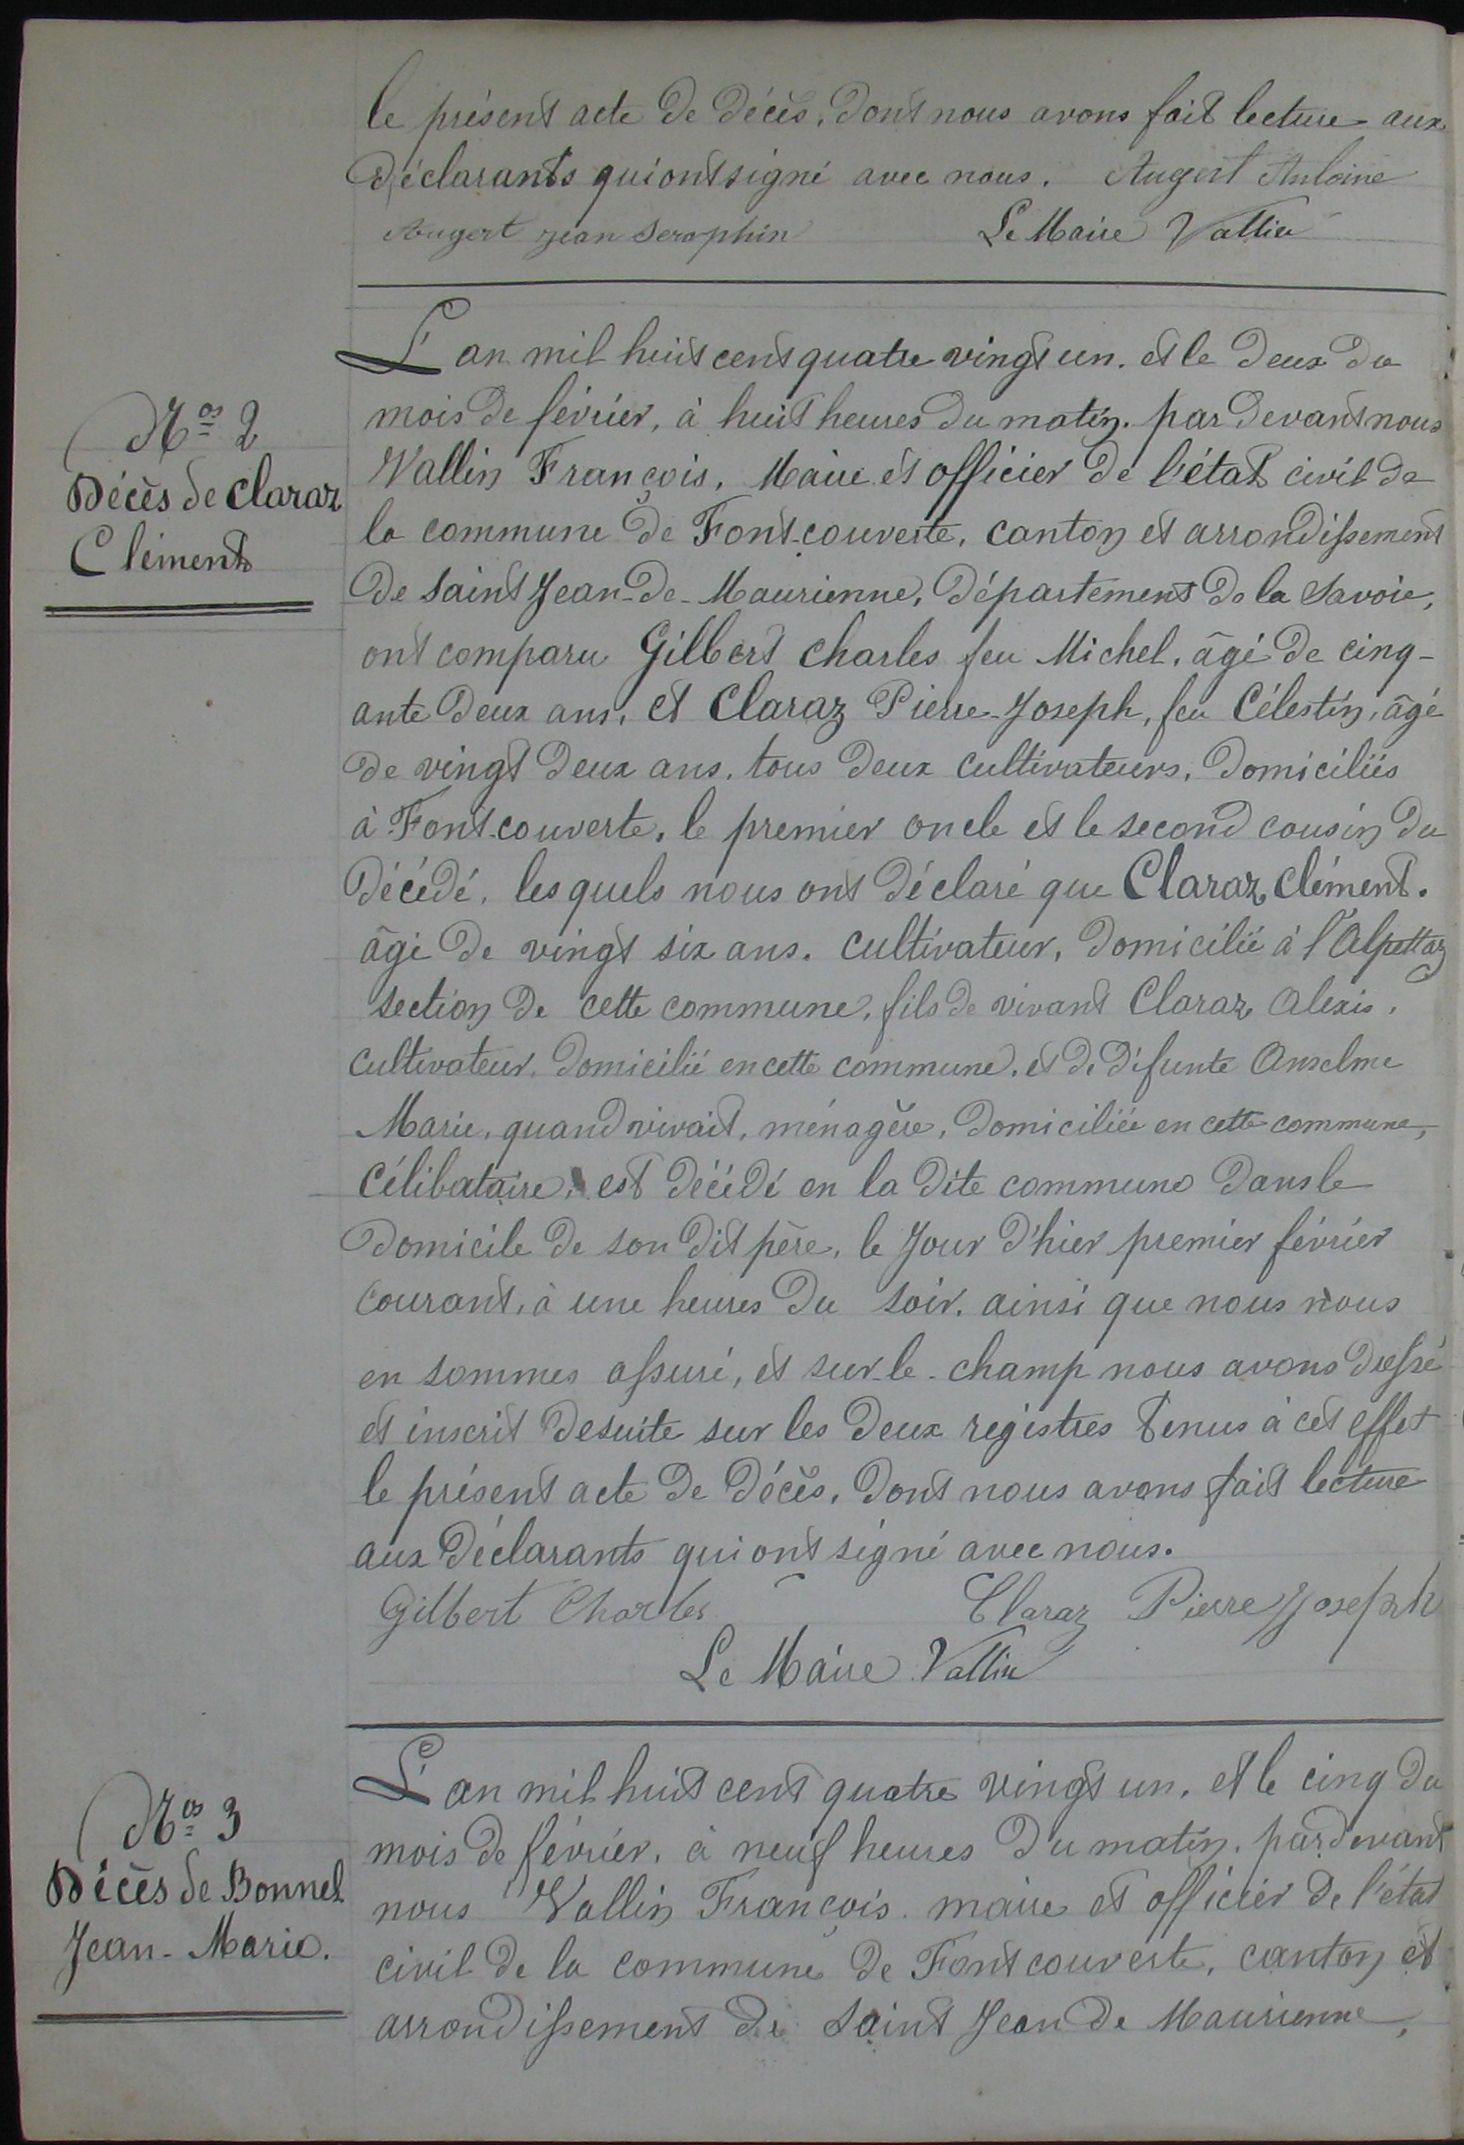 le présent acte de décès, dont nous avons fait lecture aux
déclarants qui ont signé avec nous. Augert Antoine
Augert jean Seraphin Le Maire Vallin
L'an mil huit cent quatre vingt un. et le deux du
mois de février, à huit heures du matin. par devant nous
Nos 2
Décès de Claraz
Clément
Vallin François, Maire et officier de l'état civil de
la commune de Font-couverte, canton et arrondissement
de Saint Jean-de-Maurienne, département de la Savoie,
ont comparu Gilbert Charles feu Michel, âgé de cinq-
ante deux ans, et Claraz Pierre-Joseph, feu Célestin, âgé
de vingt deux ans, tous deux cultivateurs, domiciliés
à Font-couverte, le premier oncle et le second cousin du
décédé, les quels nous ont déclaré que Claraz Clément.
âgé de vingt six ans. cultivateur, domicilié à l'Alpettaz
section de cette commune, fils de vivant Claraz Alexis,
cultivateur, domicilié en cette commune, et de défunte Anselme
Marie, quand vivait, ménagère, domiciliée en cette commune,
célibataire, est décédé en la dite commune dans le
domicile de son dit père, le jour d'hier premier février
courant, à une heures du soir. ainsi que nous nous
en sommes assuré, et sur-le-champ nous avons dressé
et inscrit desuite sur les deux registres tenus à cet effet
le présent acte de décès, dont nous avons fait lecture
aux déclarants qui ont signé avec nous.
Gilbert Charles Claraz Pierre Joseph
Le Maire Vallin
L'an mil huit cent quatre vingt un. et le cinq du
mois de février, à neuf heures du matin. par devant
Nos 3
Décès de Bonnel
Jean-Marie.
nous Vallin François. maire et officier de l'état
civil de la commune de Font couverte, canton et
arrondissement de Saint Jean de Maurienne,